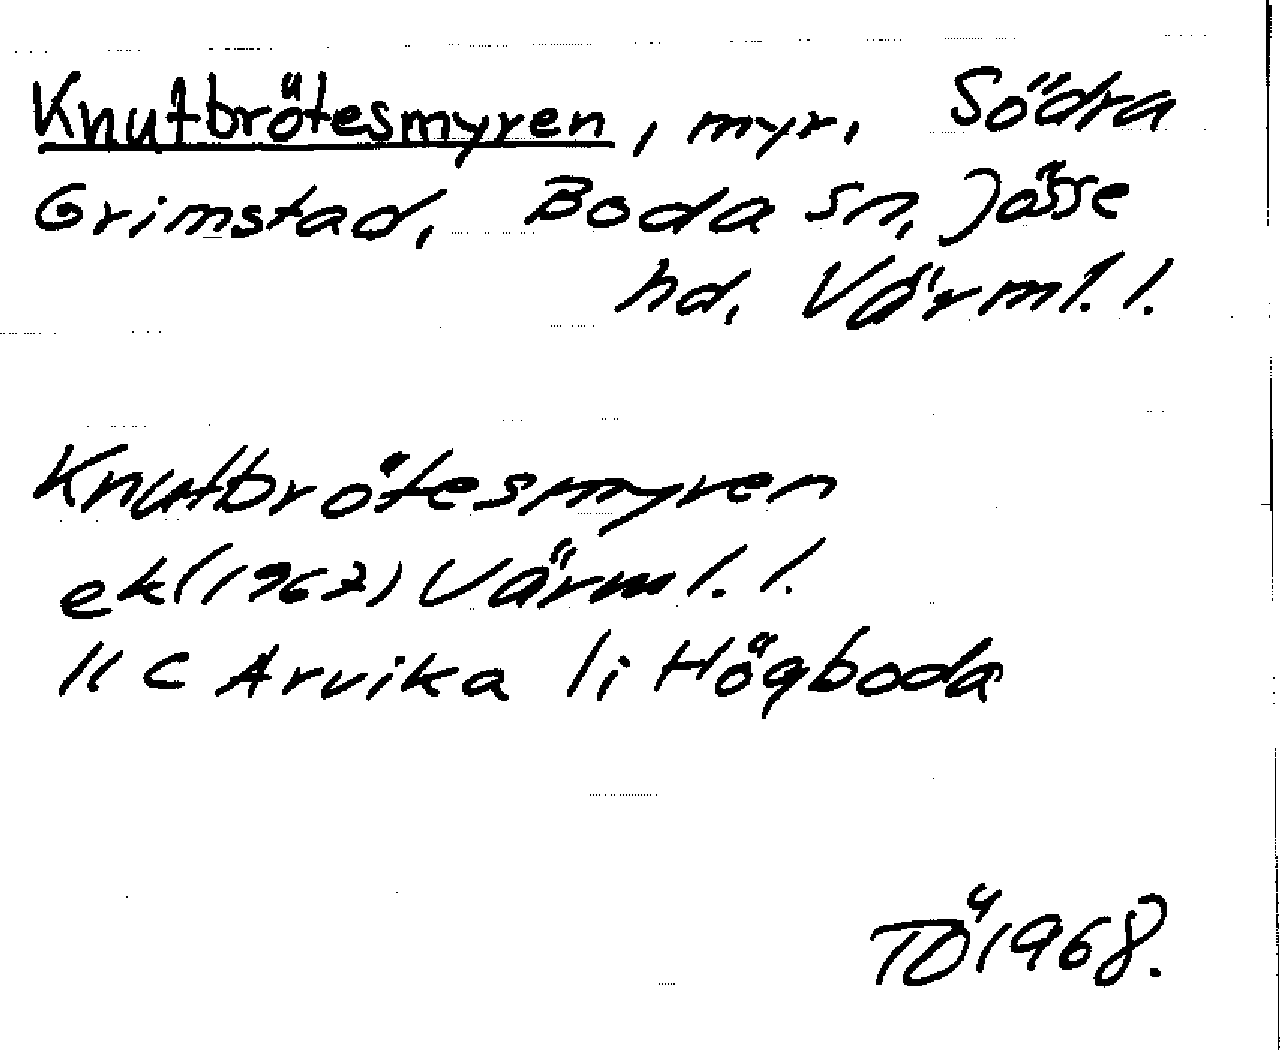 Knutbrötesmyren, myr, Södra
Grimstad, Boda sn, Jösse
hd, Värml. l.
Knutbrötesmyren
ek (1967) Värml. l.
11 C Arvika 1i Högboda
TÖ 1968.